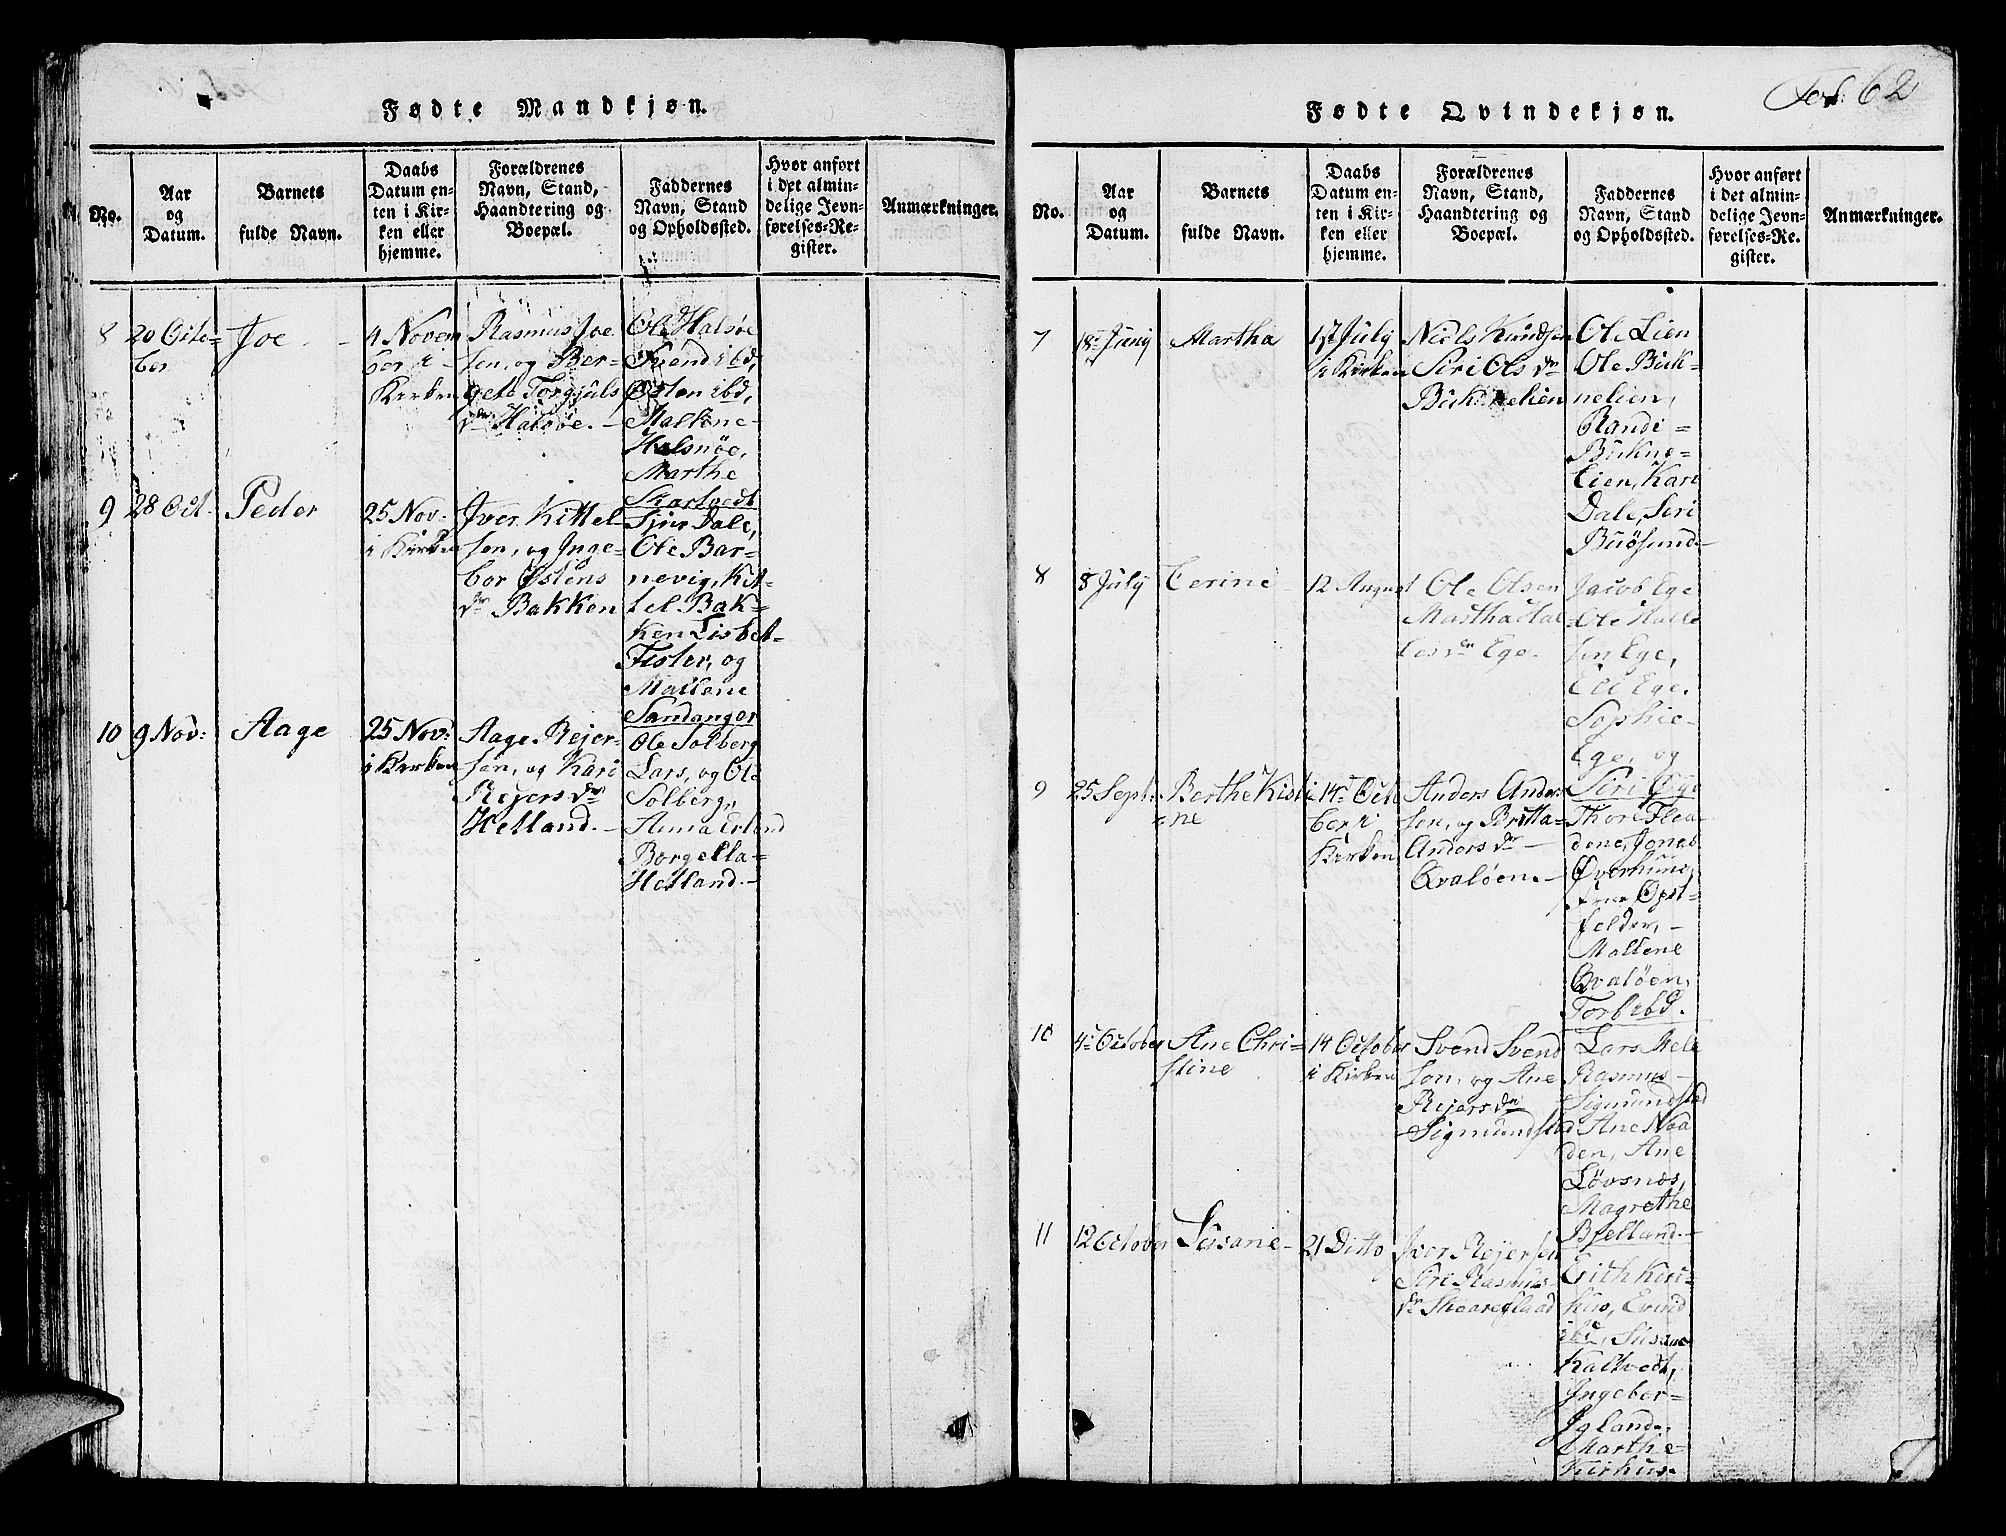 Fødte Mandkjøn.
No.
Aar
og
Datum.
Barnets
fulde Navn.
Daabs
Datum en-
ten i Kir-
ken eller
hjemme.
Forældrenes
Navn, Stand,
Haandtering og
Boepæl.
Faddernes
Navn, Stand
og Opholdssted.
Hvor anført
i det almin-
delige Jevn-
førelses-Re-
gister.
Anmærkninger.
8
20 Octo=
ber
Joe
4 Novem
ber i
Kirken
Rasmus Joe
sen, og Ber-
gete Torgjuls
dr Halsøe.-
Ole Halsøe
Svend ibd,
Østen ibd,
Mallene-
Halsnøe,
Marthe
Skartvedt
9
28 Oct-
Peder
25 Nov-
i Kirken
Iver Kittel
sen, og Inge-
bor Østens
dr Bakken
Sjur Dale,
Ole Bar-
nevig, Kit-
tel Bak-
ken Lisbet-
Fister, og
Mallene
Sandanger
10
9 Nov:
Aage
25 Nov:
i Kirken
Aage Rejer-
sen, og Kari
Rejers dr
Helland.-
Ole Solberg
Lars, og Ole
Solberg,
Anna Erland
Borgella-
Helland.-
Fol: 62
Fødte Qvindekjøn.
No.
Aar
og
Datum.
Barnets
fulde Navn.
Daabs
Datum en-
ten i Kir-
ken eller
hjemme.
Forældrenes
Navn, Stand,
Haandtering og
Boepæl.
Faddernes
Navn, Stand
og Opholdssted.
Hvor anført
i det almin-
delige Jevn-
førelses-Re-
gister.
Anmærkninger.
7
18 Juny
Martha
1st July
i Kirken
Niels Knudsen
Siri Ols dr
Buknelien
Ole Lien
Ole Buk-
nelien,
Randi =
Bukne-
lien, Kari
Dale, Siri
Buøsund-
8
8 July
Cerine
12 August
Ole Olsen
Martha Hal
Ege.
Jacob Ege
Ole Halle
sen Ege,
Eli Ege.
Sophie-
Ege, og
Siri Ege
9
25 Sept:
Berthe Kist
ine
14 Octo
ber i
Kirken
Anders Ander-
sen, og Britta=
Anders dr -
Qvaløen.-
Thore Floa
dene, Jonas
Øverhuus,
Opst=
felder, -
Mallene
Qvaløen,
Tor ibd.
10
4 October
Ane Chri=
stine
14 October
i Kirken
Svend Svend
sen, og Ane
Rejers dr
Sigmundstad
Lars Mele
Rasmus -
Sigmundstad
Ane Naa
den, Ane
Løvsnæs,
Magrethe
Bjelland.-
11
12 October
Susane-
21 Ditto
Iver Rejersen
Siri Rasmus-
dr Skaareflaad
Erich Kir-
huus, Evind
ibd, Susane
Kaltvedt,
Ingeber-
Igland,
Marthe-
Kirhus-